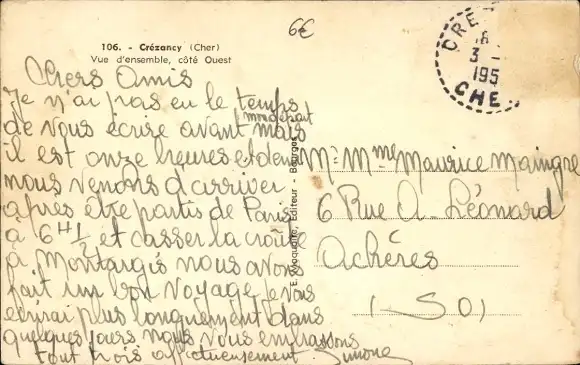 6€
106. - Crézancy (Cher)
Vue d'ensemble, côté Ouest
CRE
18
3 -
195
CHE
Chers Amis
Je n'ai pas eu le temps
de vous écrire avant mon départ mais
il est onze heures et demi
nous venons d'arriver
après être partis de Paris
à 6H 1/2 et casser la croute
à Montargis nous avons
fait un bon voyage je vous
écrirai plus longuement dans
quelques jours nous vous embrassons
tout trois affectueusement Simone
Editeur - Bourges
Mr Mme Maurice Maingre
6 Rue A. Léonard
Achères
(S O)